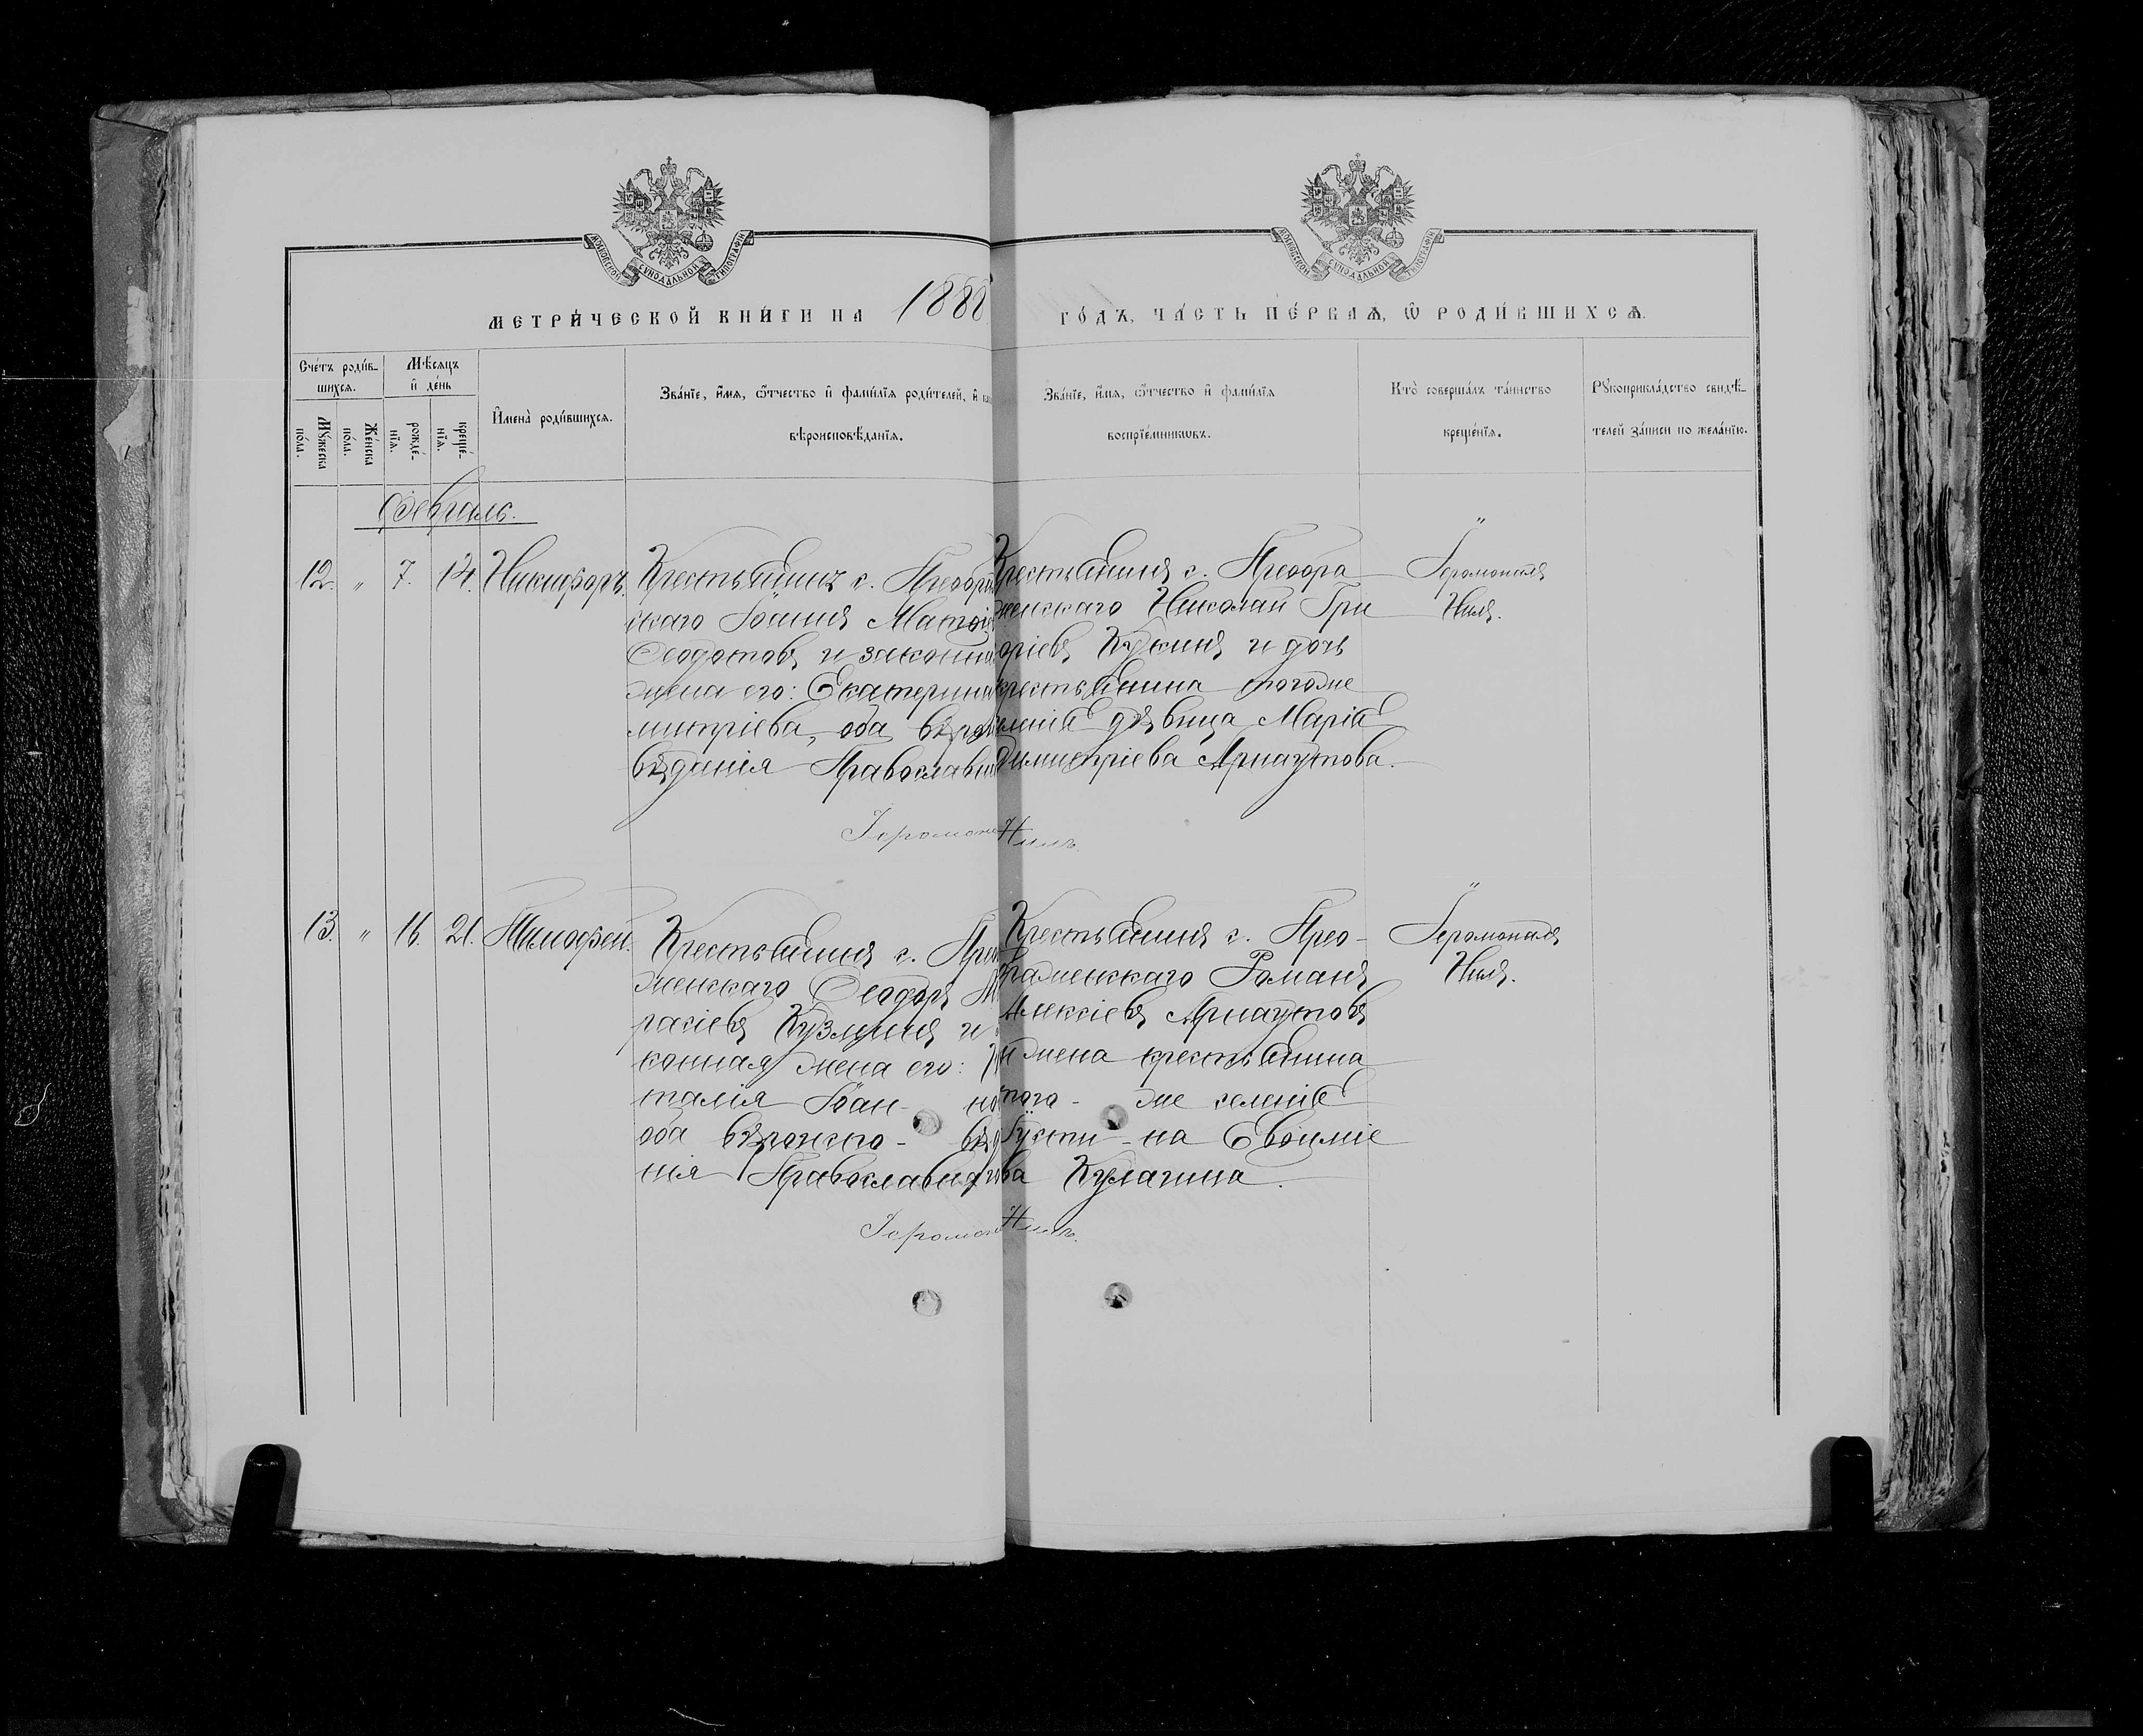 МОСКОВСКОЙ СУНОДАЛЬНОЙ ТИПОГРАФІИ
МОСКОВСКОЙ СУНОДАЛЬНОЙ ТИПОГРАФІИ
МЕТРИ́ЧЕСКОЙ КНИ́ГИ НА 1888
ГО́ДЪ, ЧА́СТЬ ПЕ́РВАѦ, Ѿ РОДИ́ВШИХСѦ.
Сче́тъ роди́в-
шихсѧ.
Мꙋ́жеска по́ла.
Же́нска по́ла.
Мѣ́сѧцъ
и҆ де́нь
рожде́-
нїѧ.
креще́-
нїѧ.
И҆мена̀ роди́вшихсѧ.
Зва́нїе, и҆́мѧ, ѻ҆́тчество и҆ фамилїѧ роди́телей, и҆
вѣроисповѣ́данїѧ.
Зва́нїе, и҆́мѧ, ѻ҆́тчество и҆ фами́лїѧ
воспрїе́мникѡвъ.
Кто̀ соверша́лъ та́инство
креще́нїѧ.
Рꙋкоприкла́дство свидѣ́-
телей за́писи по жела́нїю.
Февраль.
12. " 7. 14. Никифоръ.
Крестьянинъ с. Преобра
скаго Іоаннъ Матѳі
Ѳеодотовъ и законна
жена его: Екатерина
митріева, оба вѣрои
вѣданія Православн
Крестьянинъ с. Преобра
женскаго Николай Гри
оріевъ Кукинъ и дочь
крестьянина тогоже
еленія дѣвица Марія
Димитріева Арнаутова.
Іеромонахъ
Нилъ.
Іеромона Нилъ.
13. " 16. 21. Тимофей.
Крестьянинъ с. Прео
женскаго Ѳеодоръ
расіевъ Кузминъ и
конная жена его:
талія Іоан- но
оба вѣроиспо- вѣд
нія Православнаго
Крестьянинъ с. Прео-
браженскаго Романъ
Алексіевъ Арнаутовъ
и жена крестьянина
того- же селенія
Іусти- на Евѳиміе
ва Кулагина.
Іеромонахъ
Нилъ.
Іеромона Нилъ.